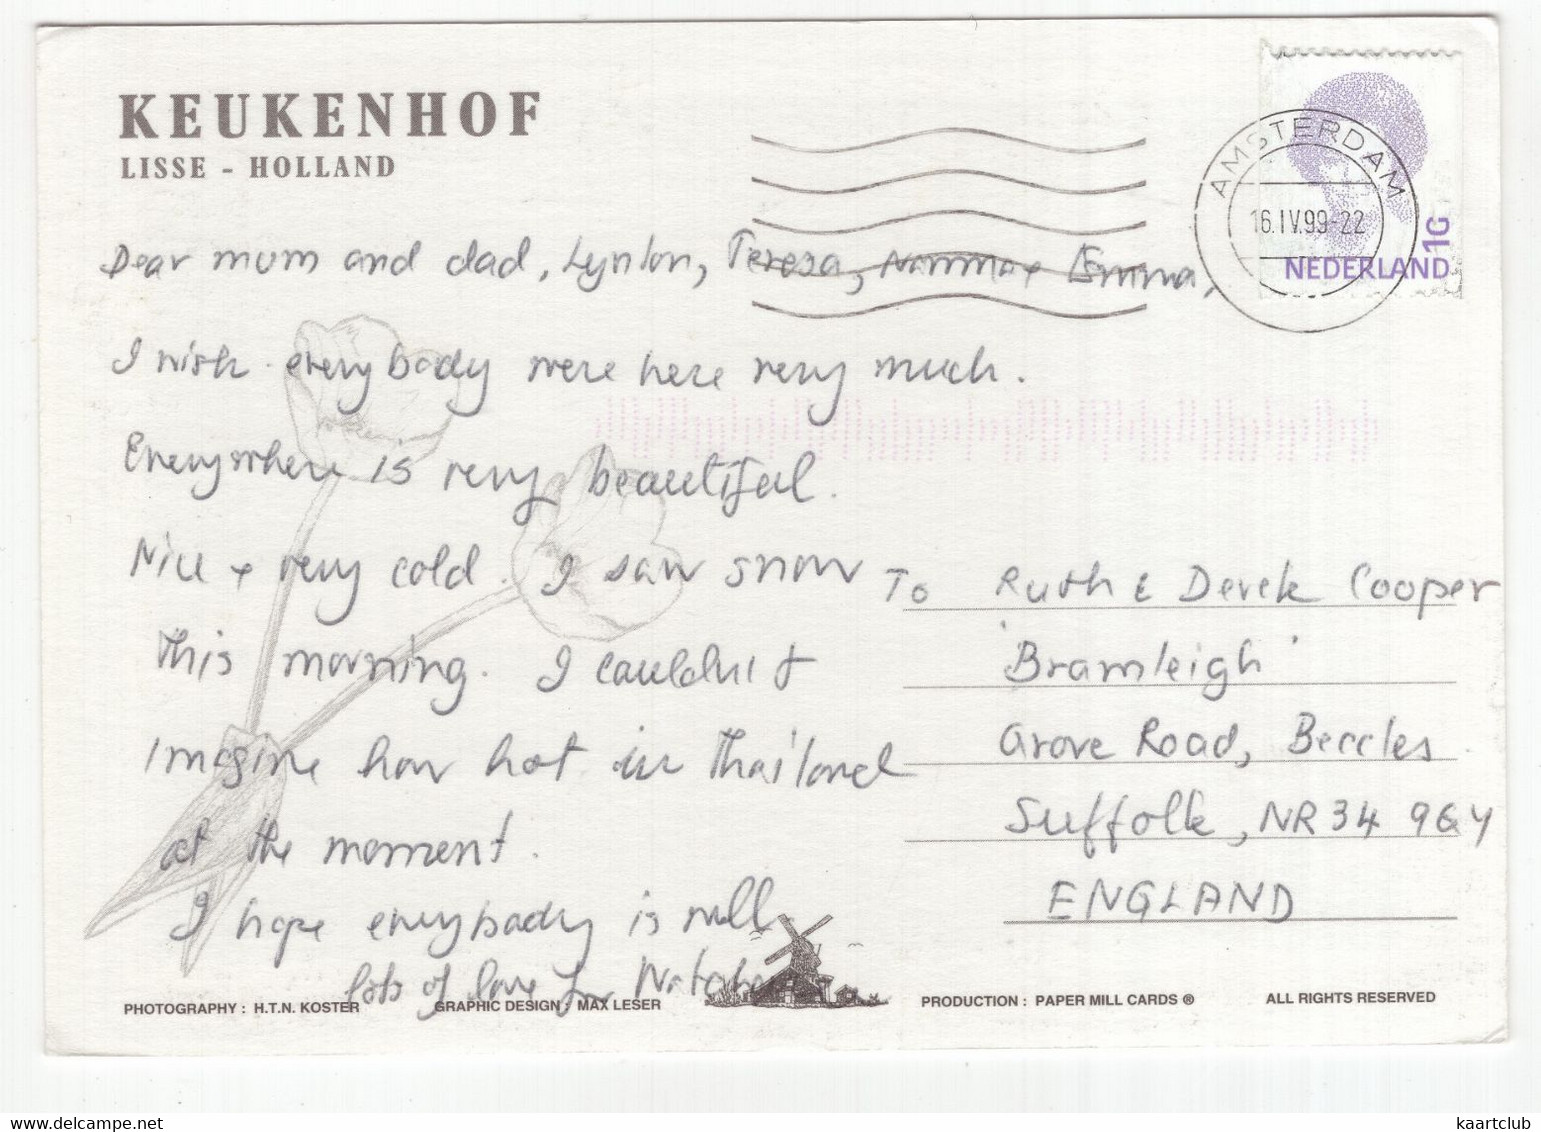 KEUKENHOF
LISSE - HOLLAND
AMSTERDAM
16.IV.99-22
NEDERLAND 1G
Dear mum and dad, Lynton, Teresa, Norma + Emma,
I wish everybody were here very much.
Everywhere is very beautiful.
Nice + very cold. I saw snow
this morning. I couldn't
imagine how hot in Thailand
at the moment.
I hope everybody is well
lots of love
To Ruth & Derek Cooper
'Bramleigh'
Grove Road, Beccles
Suffolk, NR34 9GY
ENGLAND
PHOTOGRAPHY : H.T.N. KOSTER
GRAPHIC DESIGN : MAX LESER
PRODUCTION : PAPER MILL CARDS ®
ALL RIGHTS RESERVED
www.delcampe.net
kaartclub